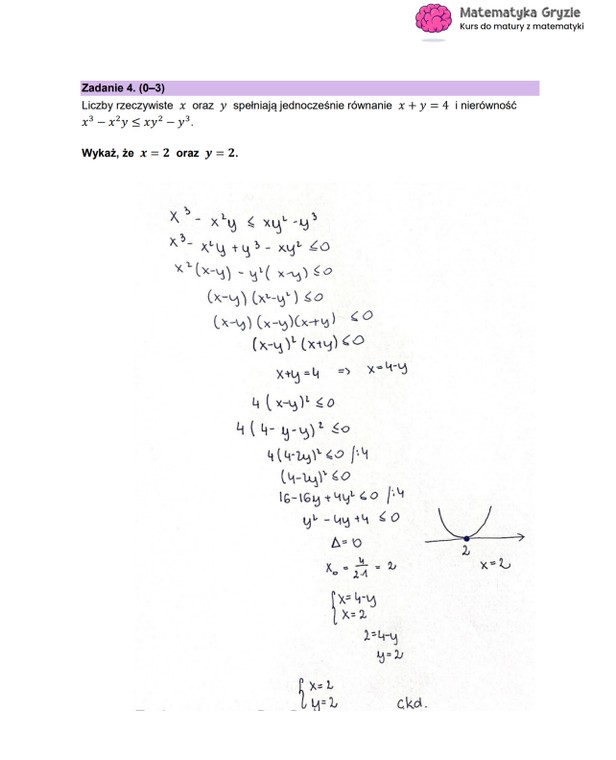 Matematyka Gryzie
Kurs do matury z matematyki
Zadanie 4. (0–3)
Liczby rzeczywiste x oraz y spełniają jednocześnie równanie x + y = 4 i nierówność
x³ − x²y ≤ xy² − y³.
Wykaż, że x = 2 oraz y = 2.
x³ - x²y ≤ xy² - y³
x³ - x²y + y³ - xy² ≤ 0
x²(x-y) - y²(x-y) ≤ 0
(x-y)(x²-y²) ≤ 0
(x-y)(x-y)(x+y) ≤ 0
(x-y)²(x+y) ≤ 0
x+y = 4 => x = 4-y
4(x-y)² ≤ 0
4(4-y-y)² ≤ 0
4(4-2y)² ≤ 0 /:4
(4-2y)² ≤ 0
16-16y+4y² ≤ 0 /:4
y² - 4y + 4 ≤ 0
Δ = 0
x₀ = 4/2·1 = 2
2
x = 2
{ x = 4-y
x = 2
2 = 4-y
y = 2
{ x = 2
y = 2 ckd.